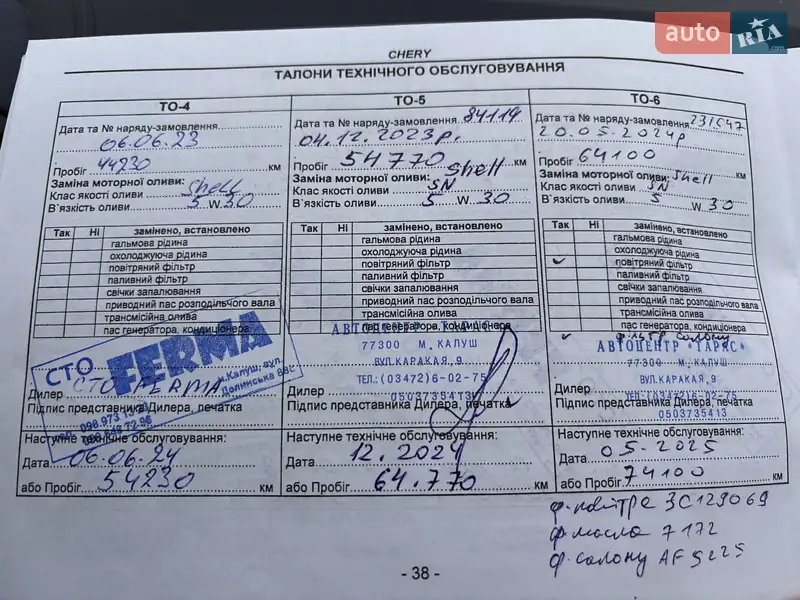 auto RIA
.com
CHERY
ТАЛОНИ ТЕХНІЧНОГО ОБСЛУГОВУВАННЯ
ТО-4
Дата та № наряду-замовлення
06.06.23
Пробіг 44230 км
Заміна моторної оливи: Shell
Клас якості оливи
В`язкість оливи 5 W 30
Так Ні замінено, встановлено
гальмова рідина
охолоджуюча рідина
повітряний фільтр
паливний фільтр
свічки запалювання
приводний пас розподільчого вала
трансмісійна олива
пас генератора, кондиціонера
СТО FERMA
м.Калуш, вул.
Долинська 88С
Дилер СТО FERMA
Підпис представника Дилера, печатка
Наступне технічне обслуговування:
Дата 06.06.24
або Пробіг 54230 км
ТО-5
Дата та № наряду-замовлення 84119
04.12.2023р.
Пробіг 54770 км
Заміна моторної оливи: Shell
Клас якості оливи SN
В`язкість оливи 5 W 30
Так Ні замінено, встановлено
гальмова рідина
охолоджуюча рідина
повітряний фільтр
паливний фільтр
свічки запалювання
приводний пас розподільчого вала
трансмісійна олива
пас генератора, кондиціонера
77300 м.КАЛУШ
ВУЛ.КАРАКАЯ,9
ТЕЛ.:(03472)6-02-75
0503735413
Дилер
Підпис представника Дилера, печатка
Наступне технічне обслуговування:
Дата 12.2024
або Пробіг 64.770 км
ТО-6
Дата та № наряду-замовлення
20.05.2024р
Пробіг 64100 км
Заміна моторної оливи: Shell
Клас якості оливи SN
В`язкість оливи 5 W 30
Так Ні замінено, встановлено
гальмова рідина
охолоджуюча рідина
повітряний фільтр
паливний фільтр
свічки запалювання
приводний пас розподільчого вала
трансмісійна олива
пас генератора, кондиціонера
фільтр салону
АВТОЦЕНТР "ТАРАС"
77300 м.КАЛУШ
ВУЛ.КАРАКАЯ,9
ТЕЛ.:(03472)6-02-75
0503735413
Дилер
Підпис представника Дилера, печатка
Наступне технічне обслуговування:
Дата 05.2025
або Пробіг 74100 км
ф.повітра ЗС129069
ф.масла 7172
ф.салону AF5225
- 38 -